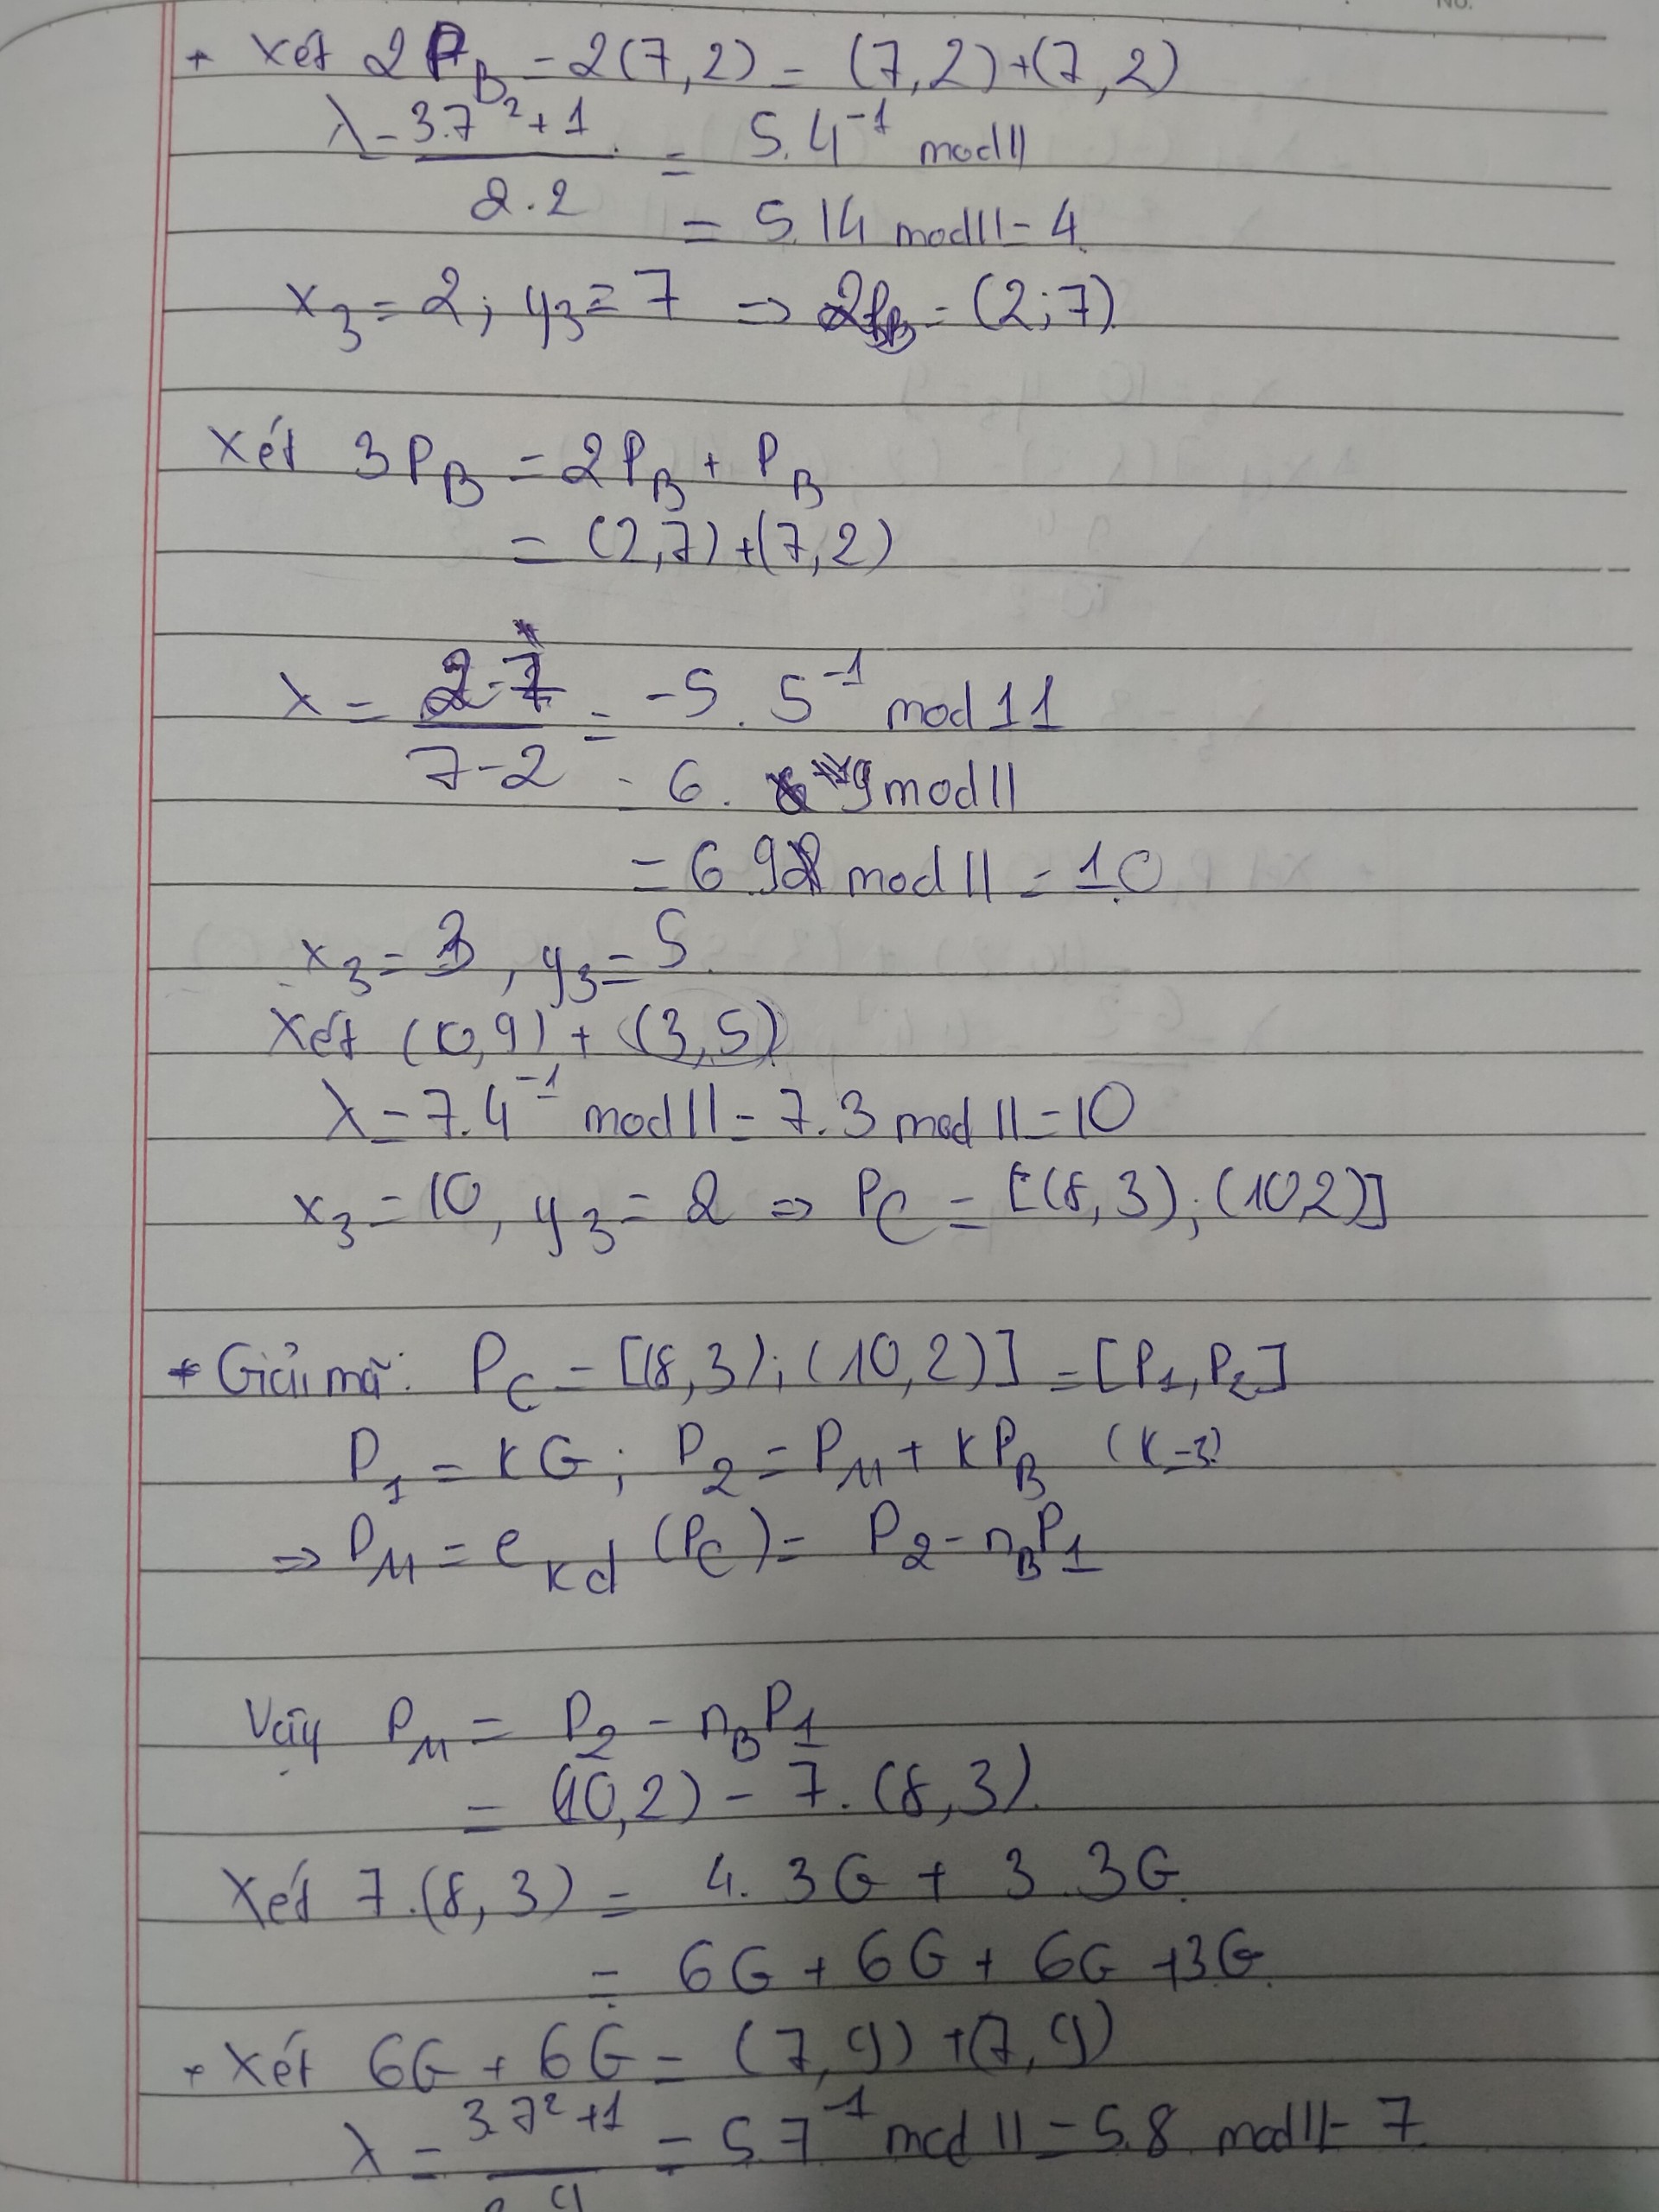 No.
+ Xét 2P_B = 2(7,2) = (7,2)+(7,2)
λ = (3.7²+1)/(2.2) = 5.4⁻¹ mod 11
= 5.14 mod 11 = 4
x₃ = 2; y₃ = 7 => 2P_B = (2;7)
Xét 3P_B = 2P_B + P_B
= (2,7)+(7,2)
λ = (2-7)/(7-2) = -5.5⁻¹ mod 11
= 6. 9 mod 11
= 6.9 mod 11 = 10
x₃ = 3, y₃ = 5
Xét (10,9) + (3,5)
λ = 7.4⁻¹ mod 11 = 7.3 mod 11 = 10
x₃ = 10, y₃ = 2 => P_C = [(8,3);(10,2)]
* Giải mã: P_C = [(8,3);(10,2)] = [P₁,P₂]
P₁ = KG; P₂ = P_M + KP_B (K=3)
=> P_M = e_Kd (P_C) = P₂ - n_B P₁
Vậy P_M = P₂ - n_B P₁
= (10,2) - 7.(8,3)
Xét 7.(8,3) = 4.3G + 3.3G
= 6G + 6G + 6G + 3G
+ Xét 6G + 6G = (7,9)+(7,9)
λ = (3.7²+1)/(2.9) = 5.7⁻¹ mod 11 = 5.8 mod 11 = 7